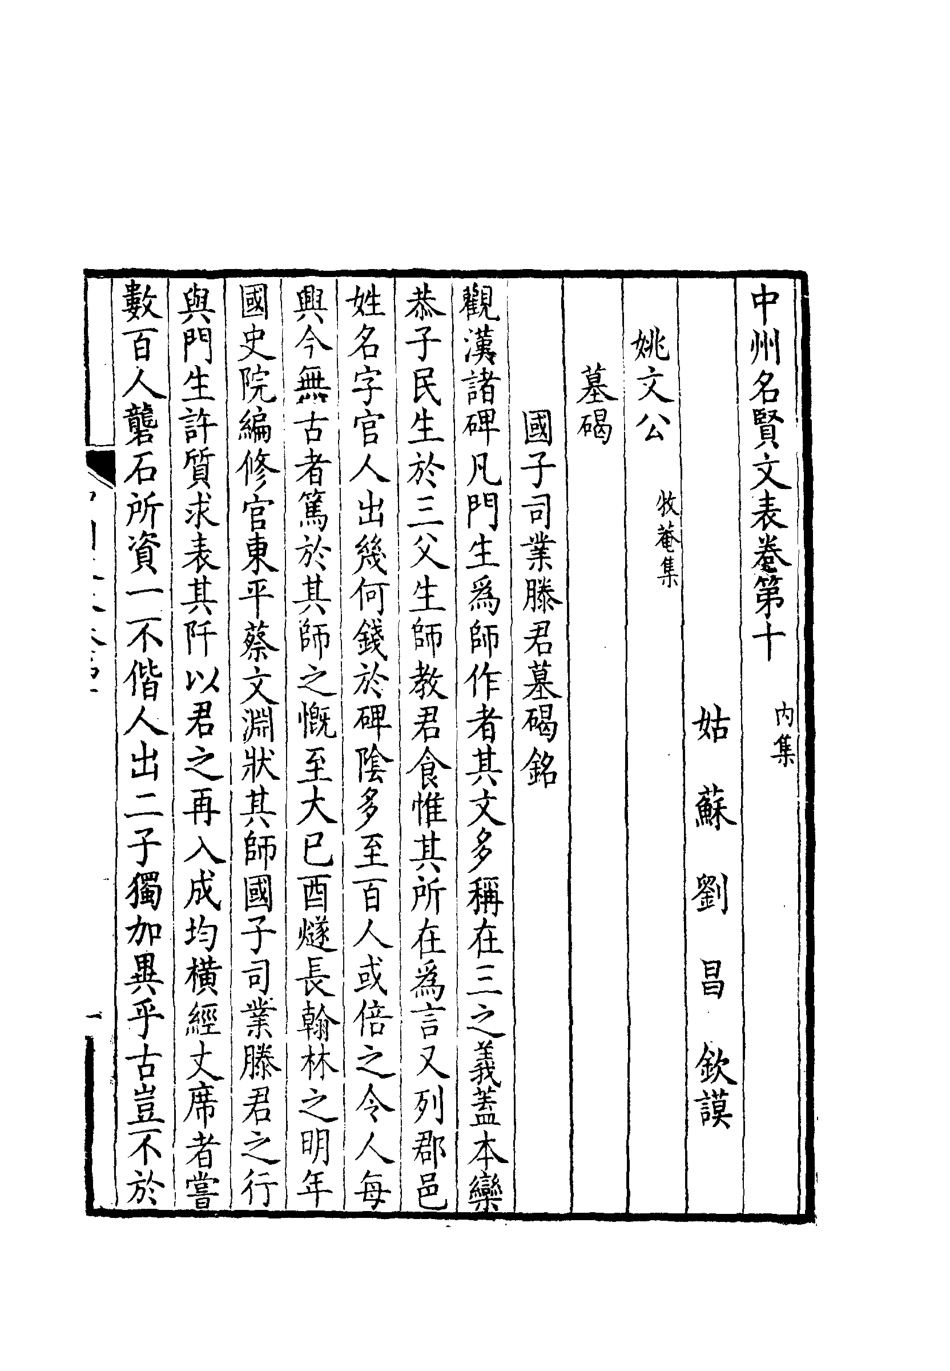 中州名賢文表卷第十 內集
姑蘇劉昌欽謨
姚文公 牧菴集
墓碣
國子司業滕君墓碣銘
觀漢諸碑凡門生爲師作者其文多稱在三之義蓋本欒
恭子民生於三父生師教君食惟其所在爲言又列郡邑
姓名字官人出幾何錢於碑陰多至百人或倍之令人每
興今無古者篤於其師之慨至大已酉燧長翰林之明年
國史院編修官東平蔡文淵狀其師國子司業滕君之行
與門生許質求表其阡以君之再入成均橫經丈席者嘗
數百人礱石所資一不偕人出二子獨加異乎古豈不於